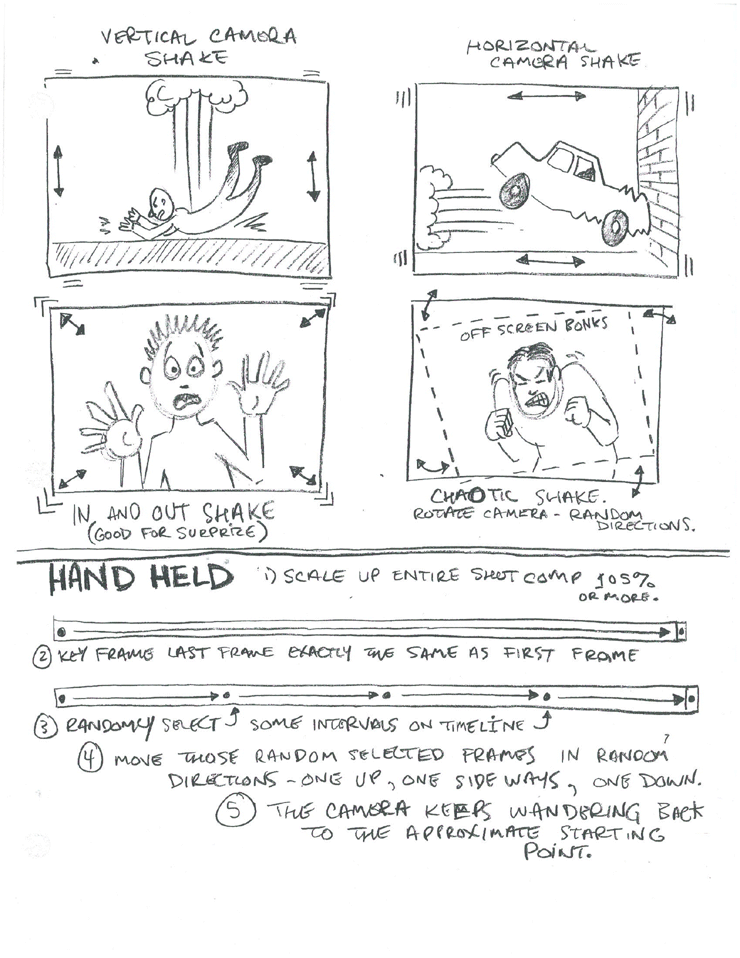 VERTICAL CAMERA
SHAKE
HORIZONTAL
CAMERA SHAKE
IN AND OUT SHAKE
(GOOD FOR SURPRIZE)
OFF SCREEN BONKS
CHAOTIC SHAKE.
ROTATE CAMERA - RANDOM
DIRECTIONS.
HAND HELD 1) SCALE UP ENTIRE SHOT COMP 105%
OR MORE.
2 KEY FRAME LAST FRAME EXACTLY THE SAME AS FIRST FRAME
3 RANDOMLY SELECT SOME INTERVALS ON TIMELINE
4 MOVE THOSE RANDOM SELECTED FRAMES IN RANDOM
DIRECTIONS - ONE UP, ONE SIDE WAYS, ONE DOWN.
5 THE CAMERA KEEPS WANDERING BACK
TO THE APPROXIMATE STARTING
POINT.